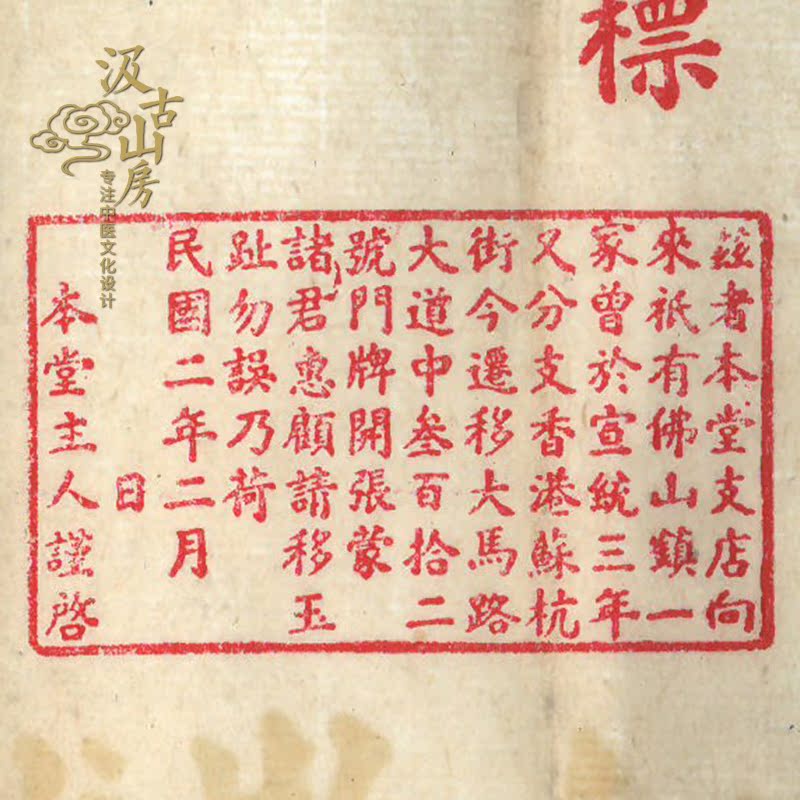 標
茲者本堂支店向
來祇有佛山鎮一
家曾於宣統三年
又分支香港蘇杭
街今遷移大馬路
大道中叁百拾二
號門牌開張蒙
諸君惠顧請移玉
趾勿誤乃荷
民國二年二月
日
本堂主人謹啓
汲古山房
专注中医文化设计